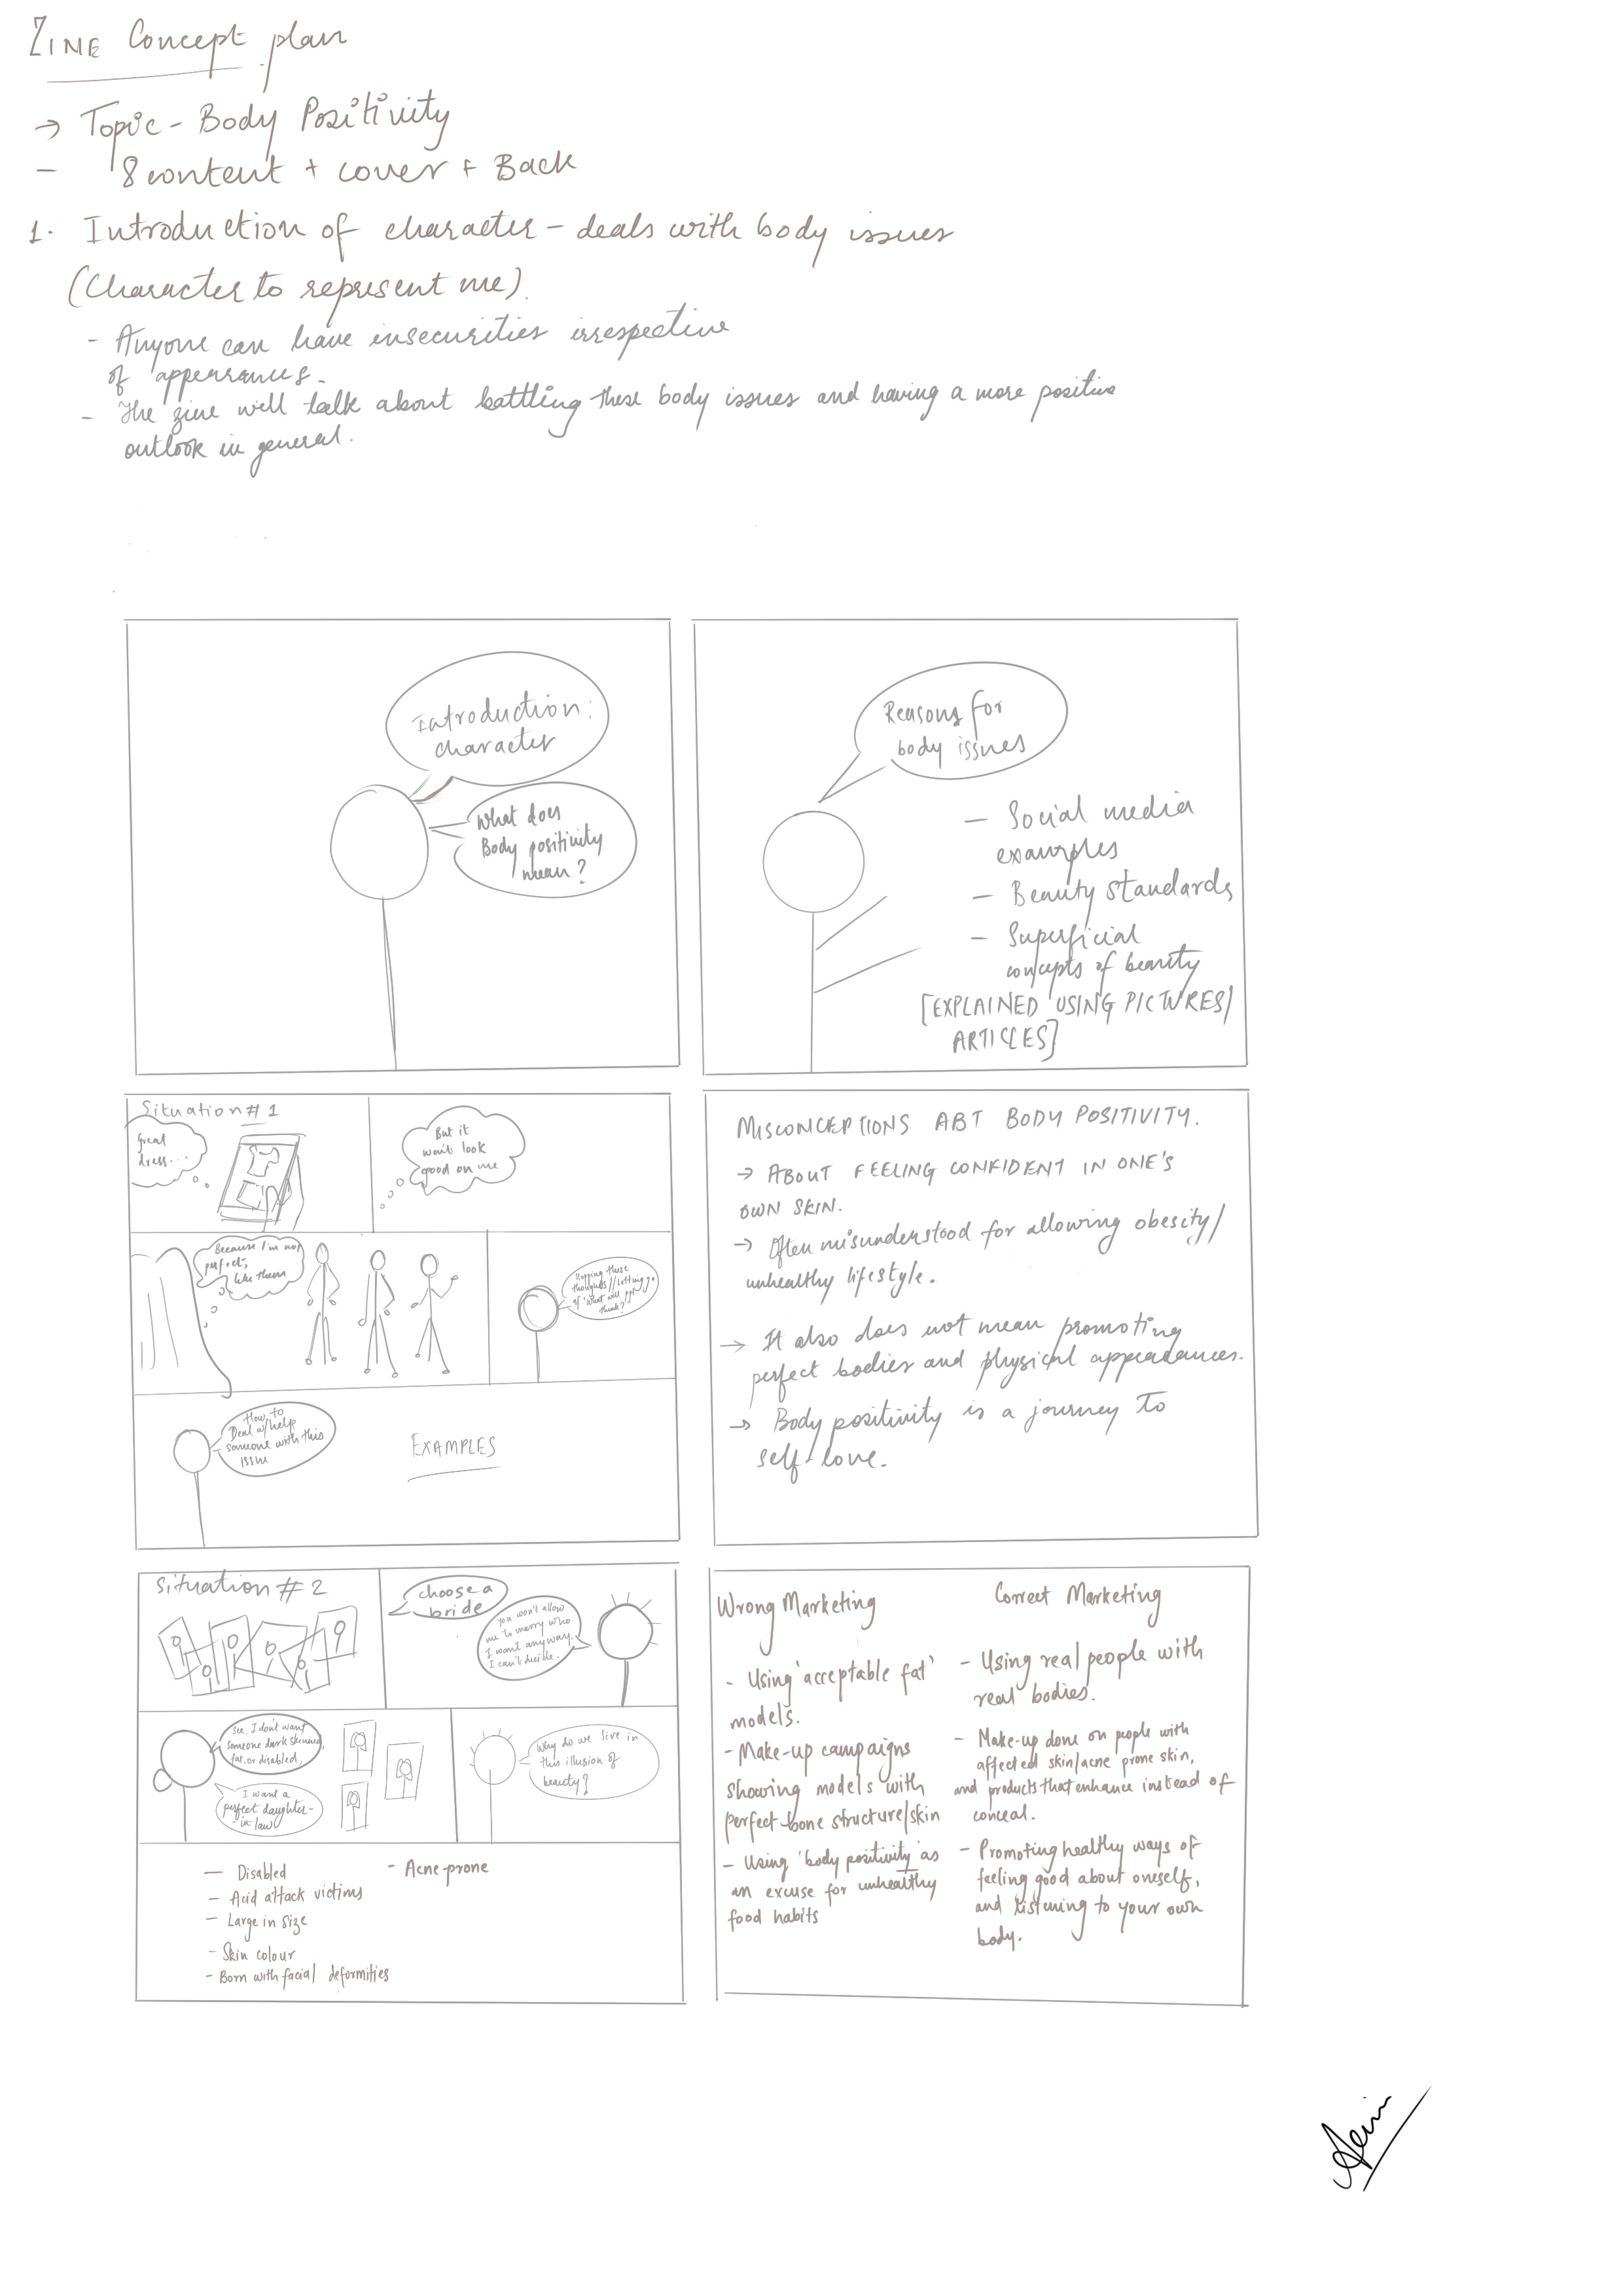 ZINE Concept plan
→ Topic - Body Positivity
- 8 content + cover + Back
1. Introduction of character - deals with body issues
(Character to represent me).
- Anyone can have insecurities irrespective
of appearances.
- The zine will talk about battling these body issues and having a more positive
outlook in general.
Introduction:
character
What does
Body positivity
mean?
Reasons for
body issues
- Social media
examples
- Beauty standards
- Superficial
concepts of beauty
[EXPLAINED USING PICTURES/
ARTICLES]
Situation # 1
Great
dress...
But it
won't look
good on me
Because I'm not
perfect,
like them
Stopping these
thoughts//letting go
of 'what will ppl
think?'
How to
Deal w/help
someone with this
issue
EXAMPLES
MISCONCEPTIONS ABT BODY POSITIVITY.
→ ABOUT FEELING CONFIDENT IN ONE'S
OWN SKIN.
→ Often misunderstood for allowing obesity/
unhealthy lifestyle.
→ It also does not mean promoting
perfect bodies and physical appearances.
→ Body positivity is a journey to
self-love.
Situation # 2
choose a
bride
You won't allow
me to marry who
I want anyway.
I can't decide.
See, I don't want
someone dark skinned,
fat or disabled.
I want a
perfect daughter-
in-law
Why do we live in
this illusion of
beauty?
- Disabled
- Acid attack victims
- Large in size
- Skin colour
- Born with facial deformities
- Acne-prone
Wrong Marketing
- Using 'acceptable fat'
models.
- Make-up campaigns
showing models with
perfect bone structure/skin
- Using 'body positivity' as
an excuse for unhealthy
food habits
Correct Marketing
- Using real people with
real bodies.
- Make-up done on people with
affected skin/acne prone skin,
and products that enhance instead of
conceal.
- Promoting healthy ways of
feeling good about oneself,
and listening to your own
body.